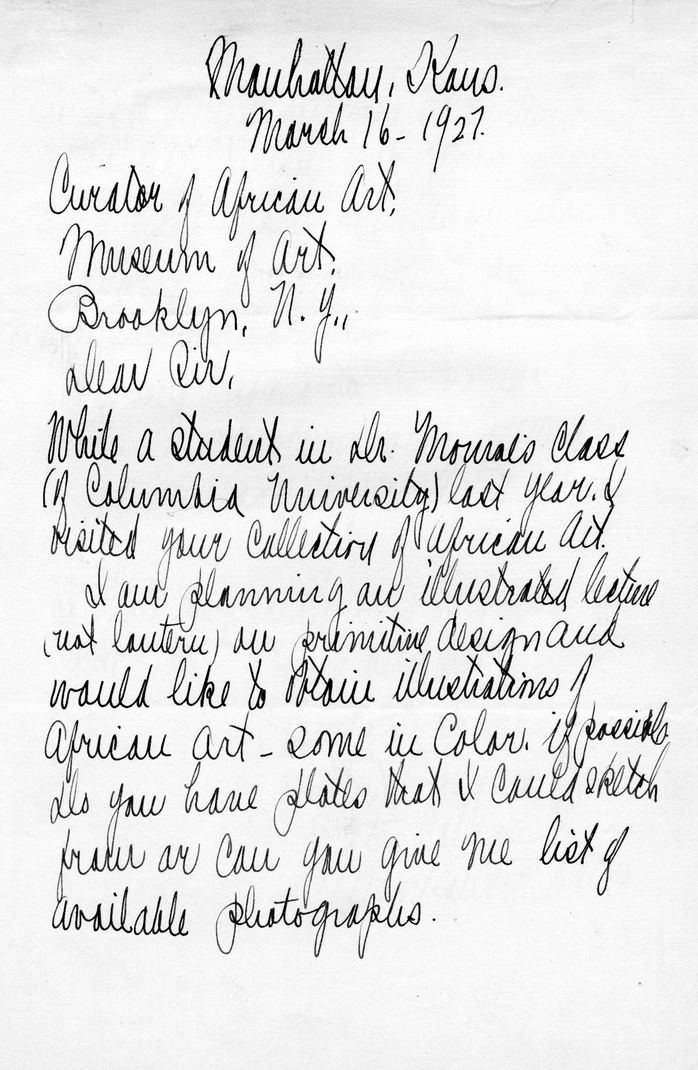 Manhattan, Kans.
March 16 - 1927.
Curator of African Art,
Museum of Art,
Brooklyn, N.Y.,
Dear Sir,
While a student in Dr. class
(of Columbia University) last year. I
visited your collection of African Art.
I am planning an illustrated lecture
(not lantern) on primitive design and
would like to obtain illustrations of
African Art - some in Color. if possible
Do you have plates that I could sketch
from or can you give me list of
available photographs.